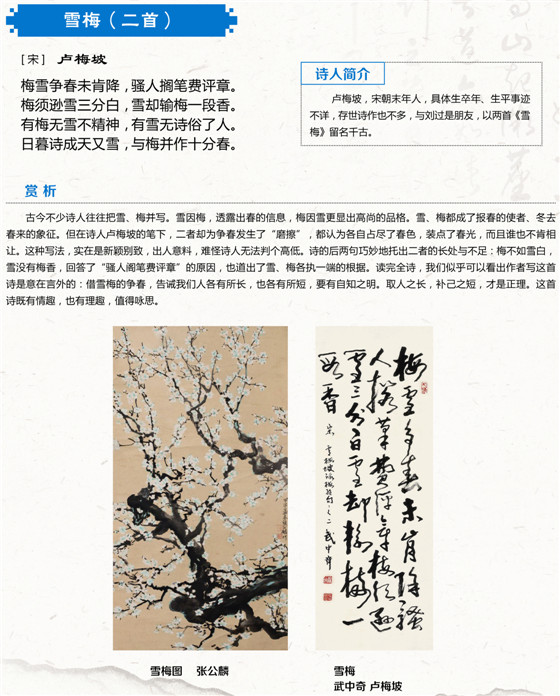 雪梅（二首）
［宋］ 卢梅坡
梅雪争春未肯降，骚人搁笔费评章。
梅须逊雪三分白，雪却输梅一段香。
有梅无雪不精神，有雪无诗俗了人。
日暮诗成天又雪，与梅并作十分春。
诗人简介
卢梅坡，宋朝末年人，具体生卒年、生平事迹
不详，存世诗作也不多，与刘过是朋友，以两首《雪
梅》留名千古。
赏 析
古今不少诗人往往把雪、梅并写。雪因梅，透露出春的信息，梅因雪更显出高尚的品格。雪、梅都成了报春的使者、冬去
春来的象征。但在诗人卢梅坡的笔下，二者却为争春发生了“磨擦”，都认为各自占尽了春色，装点了春光，而且谁也不肯相
让。这种写法，实在是新颖别致，出人意料，难怪诗人无法判个高低。诗的后两句巧妙地托出二者的长处与不足：梅不如雪白，
雪没有梅香，回答了“骚人阁笔费评章”的原因，也道出了雪、梅各执一端的根据。读完全诗，我们似乎可以看出作者写这首
诗是意在言外的：借雪梅的争春，告诫我们人各有所长，也各有所短，要有自知之明。取人之长，补己之短，才是正理。这首
诗既有情趣，也有理趣，值得咏思。
梅雪争春未肯降骚
人搁笔费评章梅须逊
雪三分白雪却输梅一
段香
雪梅图 张公麟
雪梅
武中奇 卢梅坡